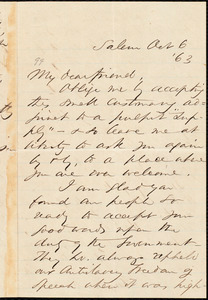 Salem Oct 6
'63
My Dear friend,
Oblige me by accepting
this small customary ad-
junct to a pulpit sup-
ply" - & leave me at
liberty to ask you again
by & by, to a place where
you are ever welcome.
I am glad you
found our people so
ready to accept your
good words upon the
duty of the Government
They have always upheld
our Antislavery freedom of
speech when it was high